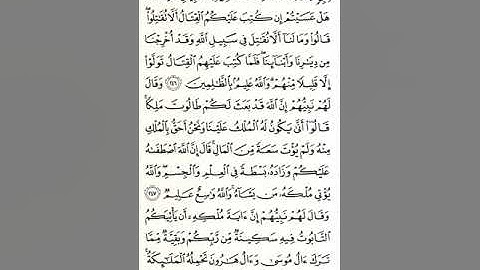 هَلْ عَسَيْتُمْ إِن كُتِبَ عَلَيْكُمُ ٱلْقِتَالُ أَلَّا تُقَٰتِلُوا۟ۖ
قَالُوا۟ وَمَا لَنَآ أَلَّا نُقَٰتِلَ فِى سَبِيلِ ٱللَّهِ وَقَدْ أُخْرِجْنَا
مِن دِيَٰرِنَا وَأَبْنَآئِنَاۖ فَلَمَّا كُتِبَ عَلَيْهِمُ ٱلْقِتَالُ تَوَلَّوْا۟
إِلَّا قَلِيلًا مِّنْهُمْۗ وَٱللَّهُ عَلِيمٌۢ بِٱلظَّٰلِمِينَ ٢٤٦ وَقَالَ
لَهُمْ نَبِيُّهُمْ إِنَّ ٱللَّهَ قَدْ بَعَثَ لَكُمْ طَالُوتَ مَلِكًاۚ
قَالُوٓا۟ أَنَّىٰ يَكُونُ لَهُ ٱلْمُلْكُ عَلَيْنَا وَنَحْنُ أَحَقُّ بِٱلْمُلْكِ
مِنْهُ وَلَمْ يُؤْتَ سَعَةً مِّنَ ٱلْمَالِۚ قَالَ إِنَّ ٱللَّهَ ٱصْطَفَىٰهُ
عَلَيْكُمْ وَزَادَهُۥ بَسْطَةً فِى ٱلْعِلْمِ وَٱلْجِسْمِۖ وَٱللَّهُ
يُؤْتِى مُلْكَهُۥ مَن يَشَآءُۚ وَٱللَّهُ وَٰسِعٌ عَلِيمٌ ٢٤٧
وَقَالَ لَهُمْ نَبِيُّهُمْ إِنَّ ءَايَةَ مُلْكِهِۦٓ أَن يَأْتِيَكُمُ
ٱلتَّابُوتُ فِيهِ سَكِينَةٌ مِّن رَّبِّكُمْ وَبَقِيَّةٌ مِّمَّا
تَرَكَ ءَالُ مُوسَىٰ وَءَالُ هَٰرُونَ تَحْمِلُهُ ٱلْمَلَٰٓئِكَةُۚ